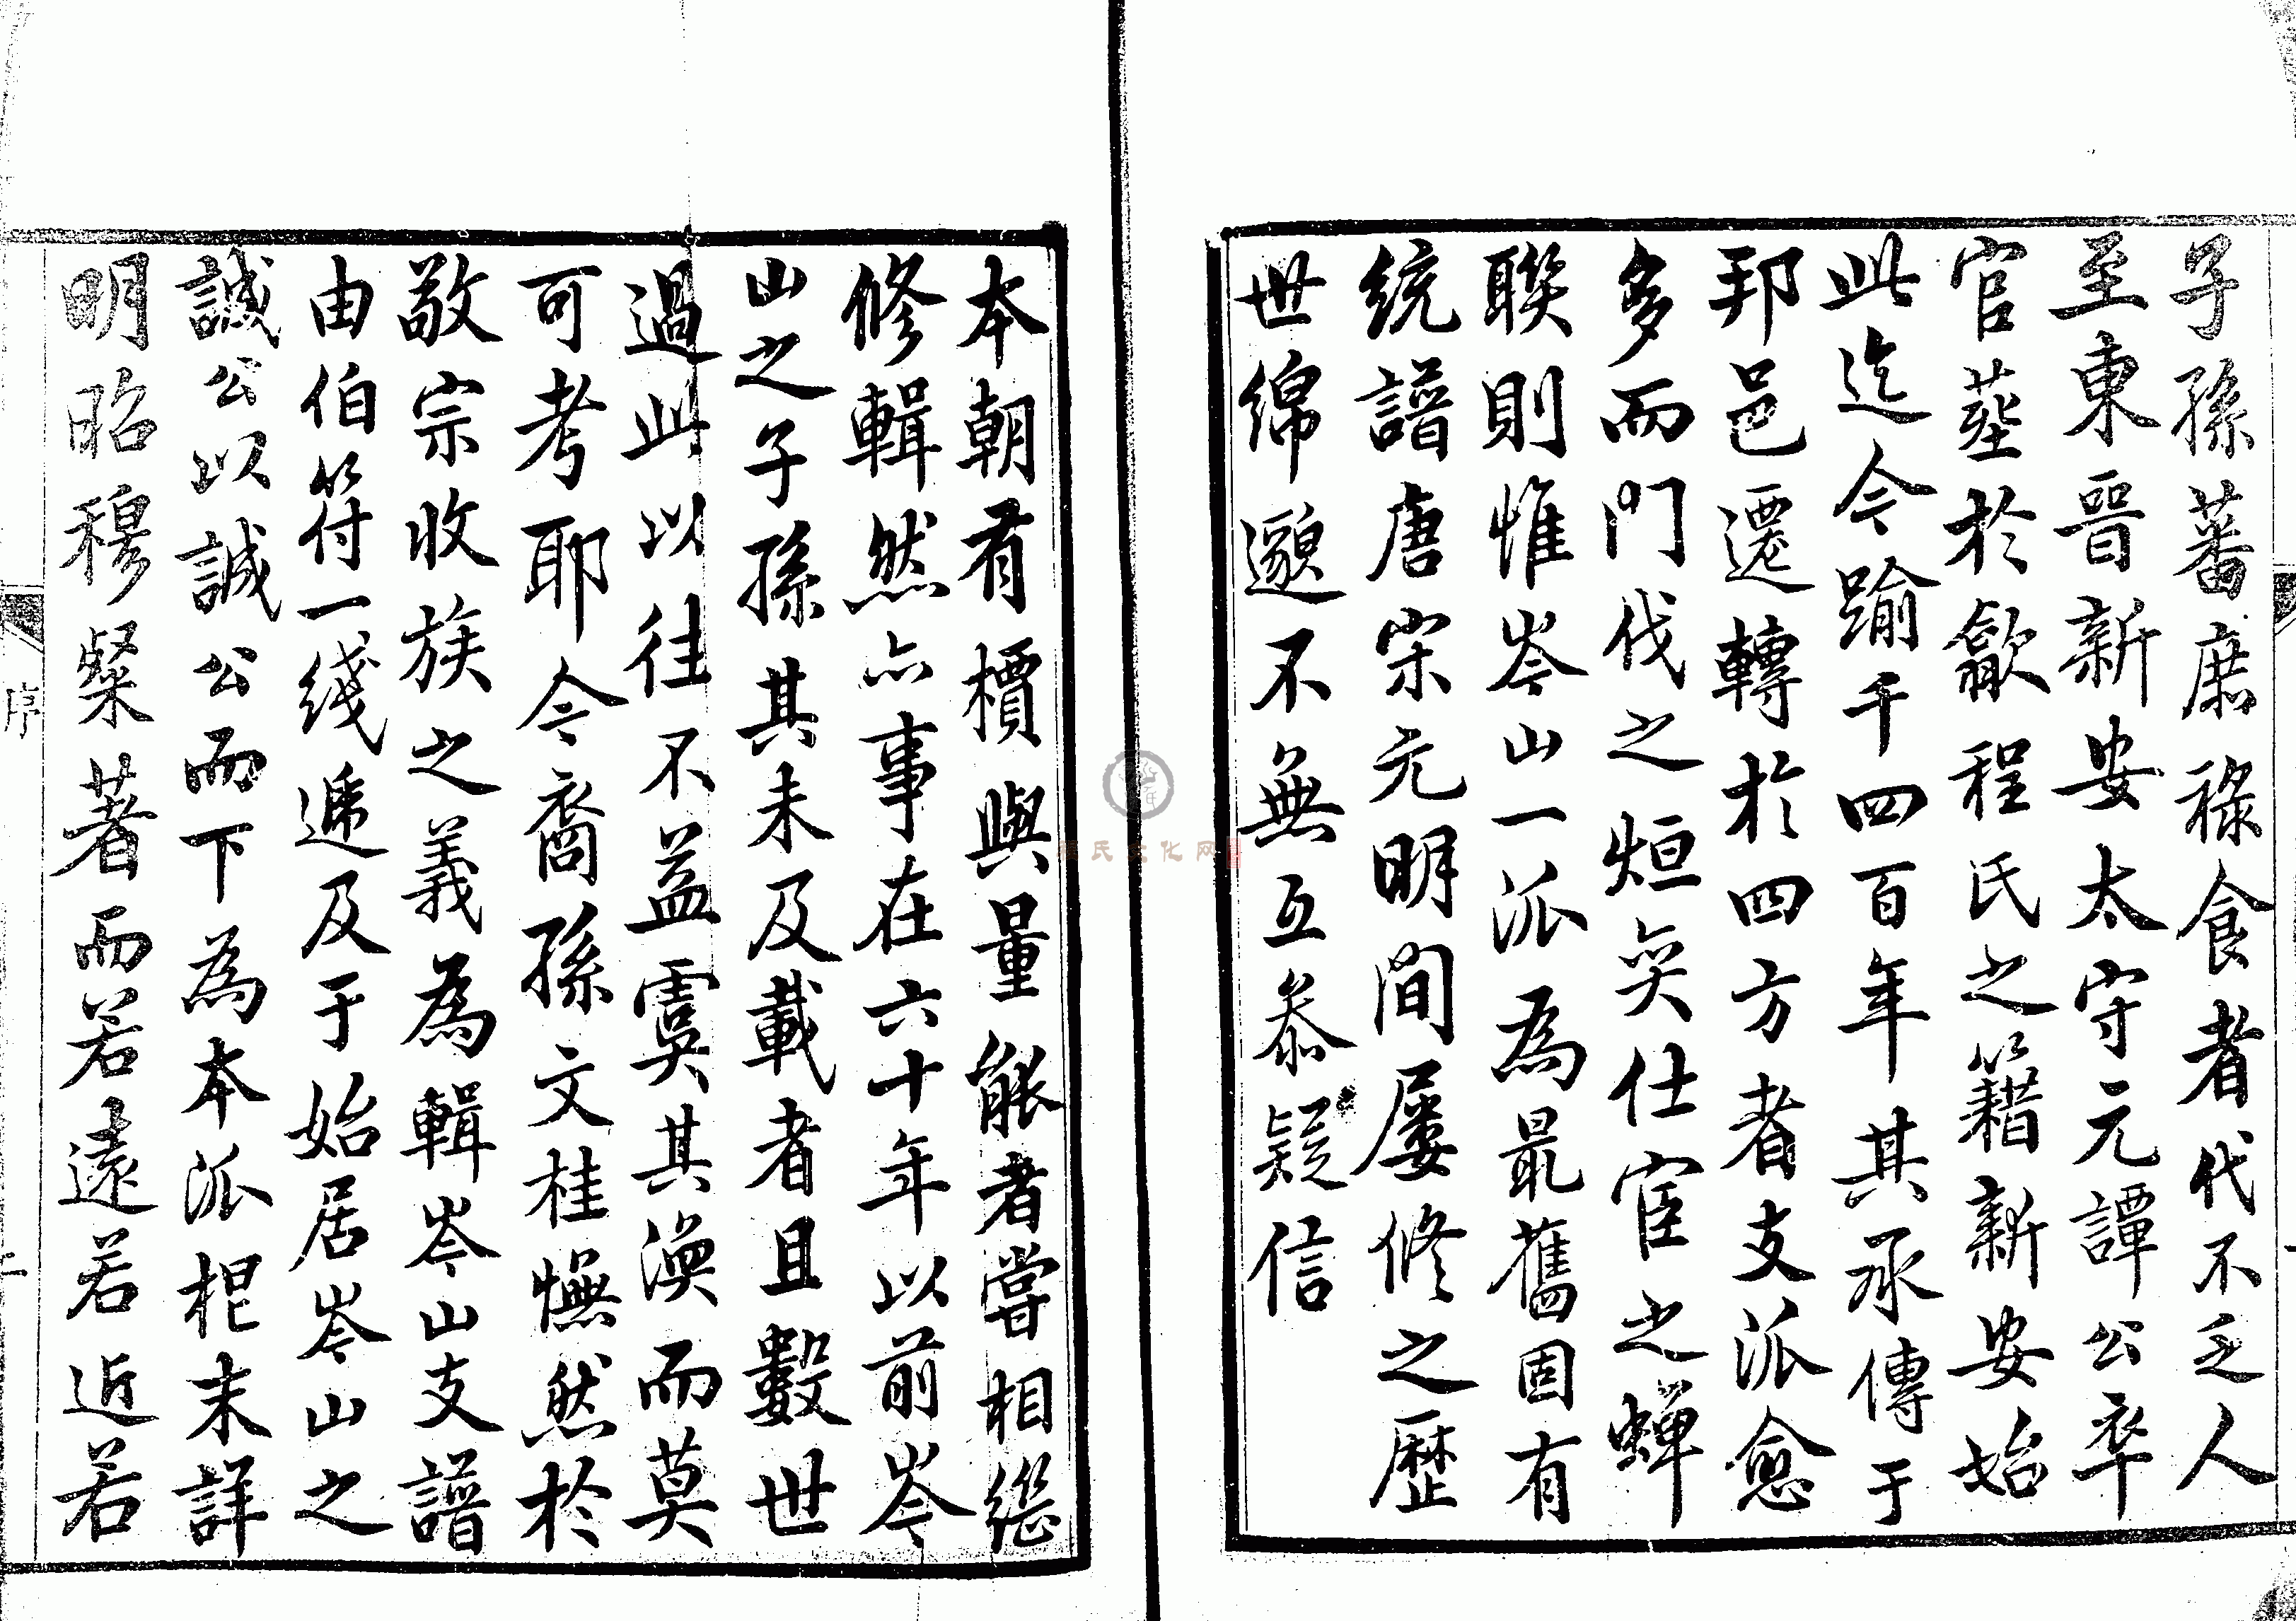 子孫蕃庶祿食者代不乏人
至東晉新安太守元譚公卒
官塟於歙程氏之籍新安始
此迄今踰千四百年其承傳于
邦邑遷轉於四方者支派愈
多而門伐之烜奕仕宦之蟬
聯則惟岑山一派為最舊固有
統譜唐宋元明間屢修之歷
世綿邈不無互叅疑信
本朝有檟與量能者嘗相繼
修輯然亦事在六十年以前岑
山之子孫其未及載者且數世
過此以往不益虞其渙而莫
可考耶今裔孫文桂憮然於
敬宗收族之義為輯岑山支譜
由伯符一綫遞及于始居岑山之
誠公以誠公而下為本派根末詳
明昭穆粲著而若遠若近若
序
二
氏文化网